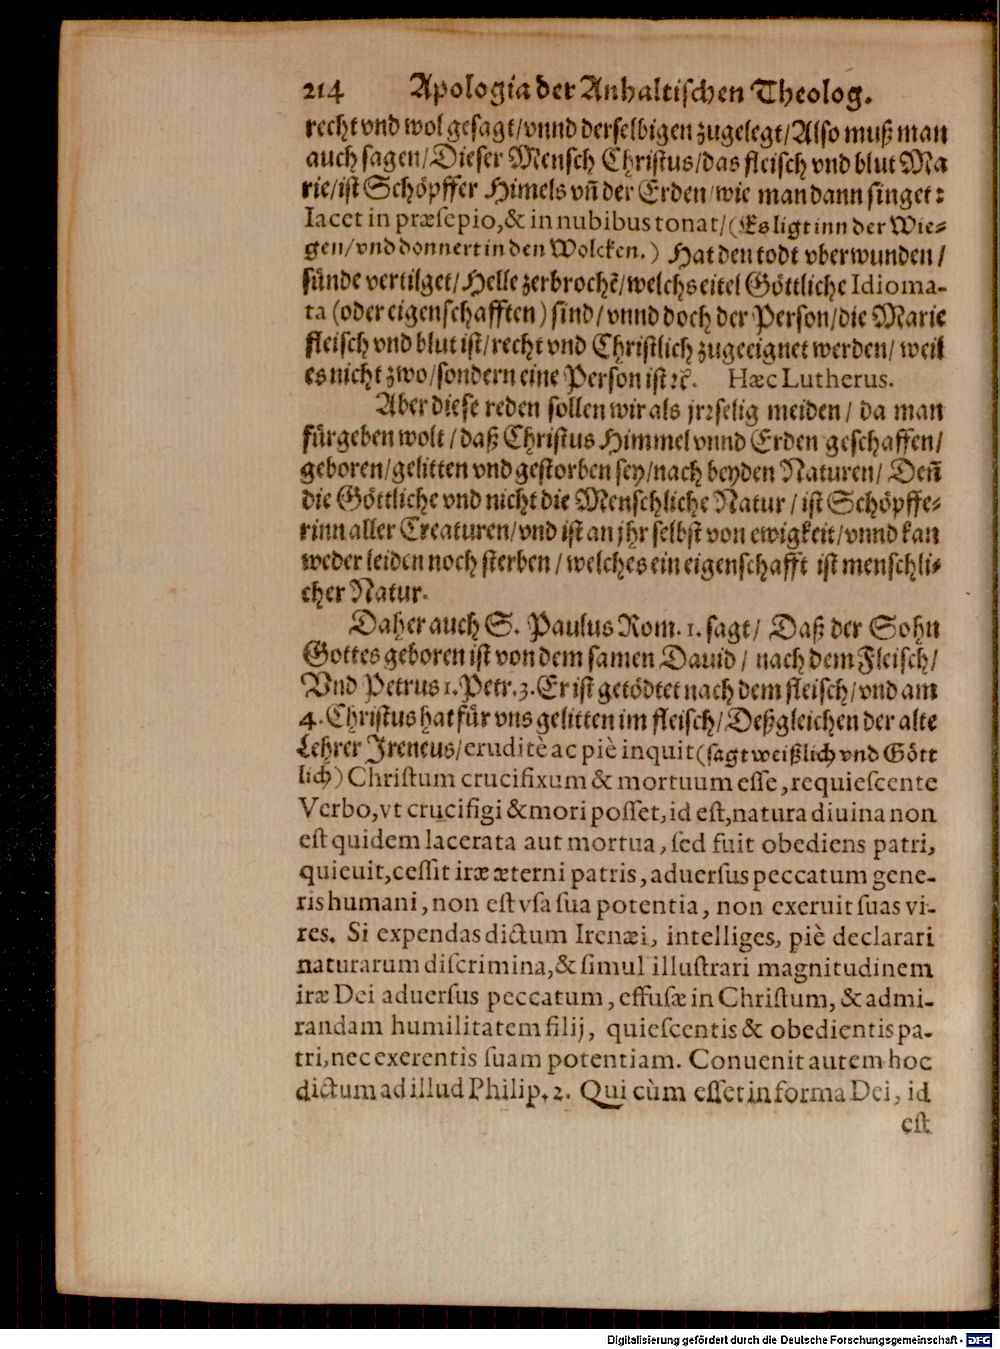 214 Apologia der Anhaltischen Theolog.
recht vnd wol gesagt/vnnd derselbigen zugelegt/Also muß man
auch sagen/Dieser Mensch Christus/das fleisch vnd blut Ma
rie/ist Schöpffer Himels vñ der Erden/wie man dann singet:
Iacet in præsepio,& in nubibus tonat/(Es ligt inn der Wie-
gen/vnd donnert in den Wolcken.) Hat den todt vberwunden/
sünde vertilget/Helle zerbrochẽ/welchs eitel Göttliche Idioma-
ta (oder eigenschafften) sind/vnnd doch der Person/die Marie
fleisch vnd blut ist/recht vnd Christlich zugeeignet werden/weil
es nicht zwo/sondern eine Person ist ꝛc. Hæc Lutherus.
Aber diese reden sollen wir als jrrselig meiden/ da man
fürgeben wolt/daß Christus Himmel vnnd Erden geschaffen/
geboren/gelitten vnd gestorben sey/nach beyden Naturen/ Deñ
die Göttliche vnd nicht die Menschliche Natur/ist Schöpffe-
rinn aller Creaturen/vnd ist an jhr selbst von ewigkeit/vnnd kan
weder leiden noch sterben/welches ein eigenschafft ist menschli-
cher Natur.
Daher auch S. Paulus Rom. 1. sagt/ Daß der Sohn
Gottes geboren ist von dem samen Dauid/ nach dem Fleisch/
Vnd Petrus 1. Petr. 3. Er ist getödtet nach dem fleisch/vnd am
4. Christus hat für vns gelitten im fleisch/Deßgleichen der alte
Lehrer Jreneus/eruditè ac piè inquit (sagt weißlich vnd Gött
lich) Christum crucifixum & mortuum esse, requiescente
Verbo,vt crucifigi & mori posset, id est,natura diuina non
est quidem lacerata aut mortua, sed fuit obediens patri,
quieuit,cessit iræ æterni patris, aduersus peccatum gene-
ris humani, non est vsa sua potentia, non exeruit suas vi-
res. Si expendas dictum Irenæi, intelliges, piè declarari
naturarum discrimina,& simul illustrari magnitudinem
iræ Dei aduersus peccatum, effusæ in Christum, & admi-
randam humilitatem filij, quiescentis & obedientis pa-
tri,nec exerentis suam potentiam. Conuenit autem hoc
dictum ad illud Philip. 2. Qui cùm esset in forma Dei, id
est
Digitalisierung gefördert durch die Deutsche Forschungsgemeinschaft - DFG